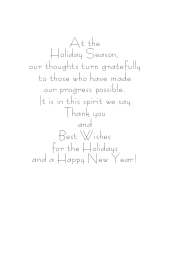 At the
Holiday Season,
our thoughts turn gratefully
to those who have made
our progress possible.
It is in this spirit we say
Thank you
and
Best Wishes
for the Holidays
and a Happy New Year!